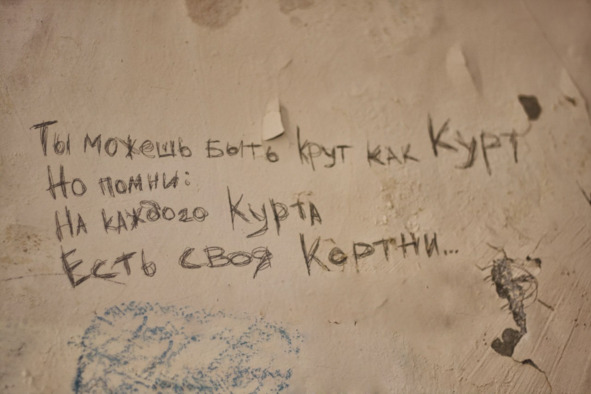 Ты можешь быть крут как Курт
Но помни:
На каждого Курта
Есть своя Кортни...